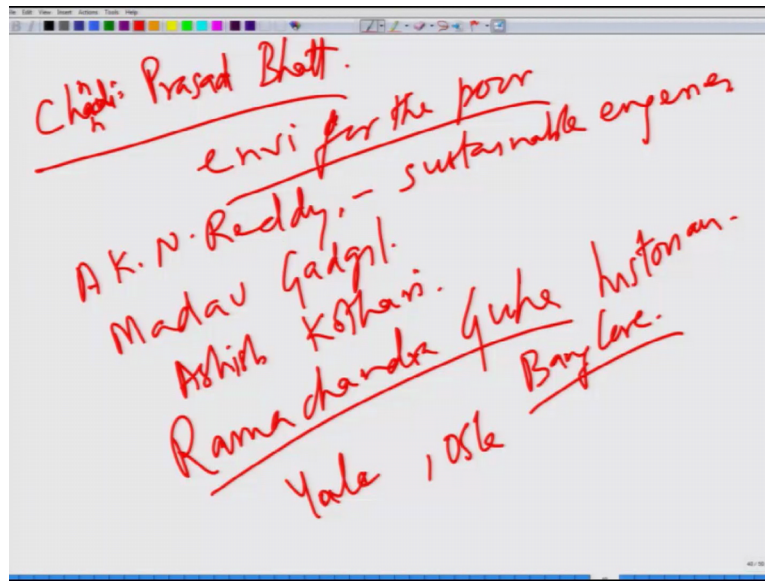 File Edit View Insert Actions Tools Help
Chandi Prasad Bhatt.
envi for the poor
A K. N. Reddy, - sustainable energies
Madav Gadgil.
Ashish Kothari.
Ramachandra Guha historian.
Yale, Oslo Banglore.